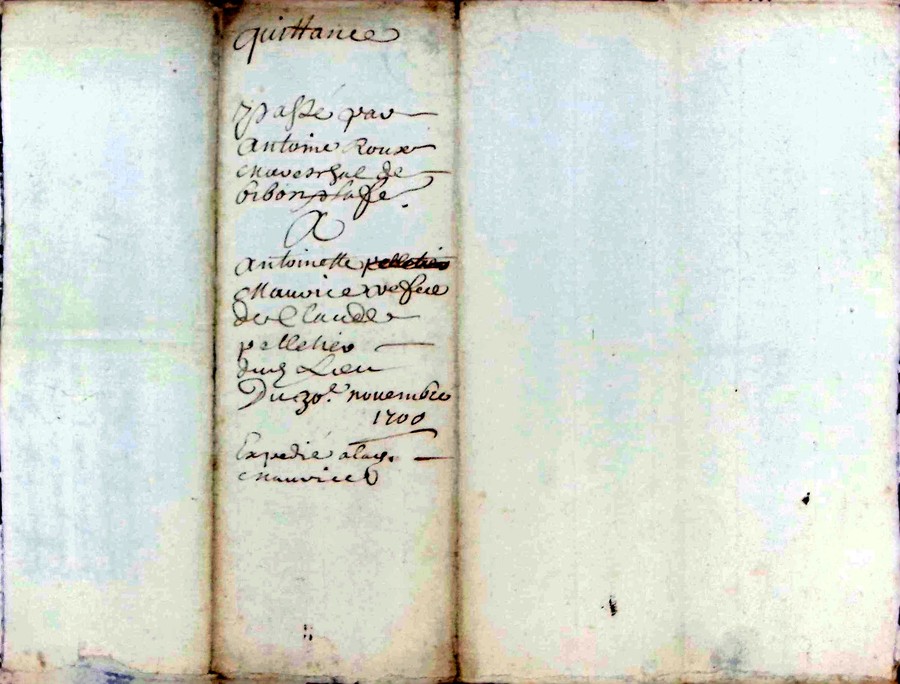 quittance
Passé par
Antoine Roux
mareschal de
A
Antoinette pelletier
Maurice vefve
de Claude
pelletier
dud lieu
Du 30e novembre
1700
Expedié a lad.
Maurice